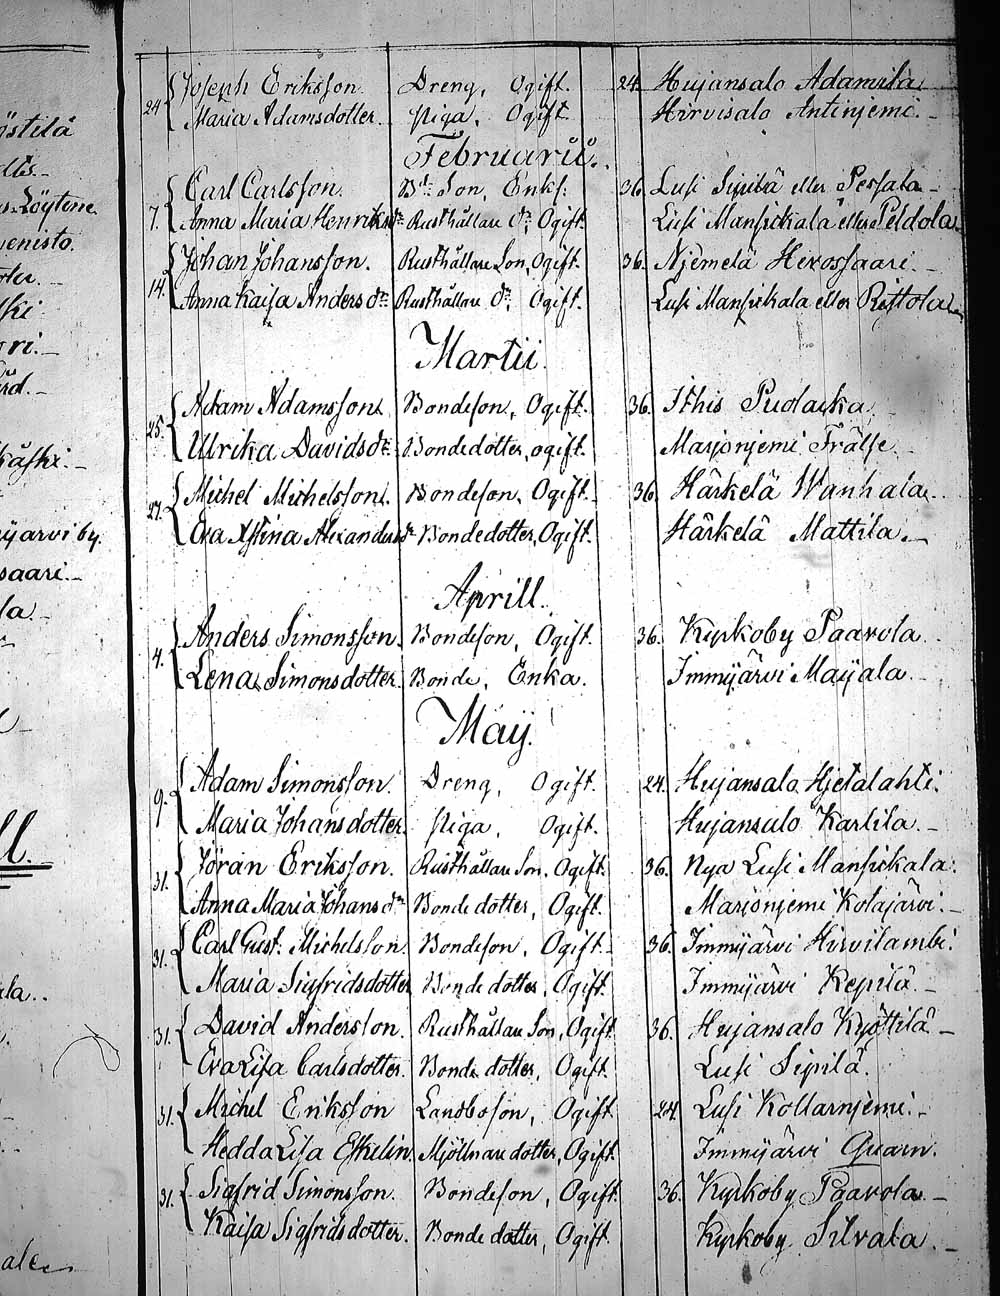 24. Joseph Eriksson. Dreng, Ogift. 24. Hujansalo Adamila.
Maria Adamsdotter. Piga, Ogift. Hirvisalo Antinjemi.
Februarii.
7. Carl Carlsson. Bde Son, Enkl. 36. Lusi Sipilä eller Pessala
Anna Maria Henriksdr Rusthållare dr, Ogift. Lusi Mansickala eller Peldola
14. Johan Johansson. Rusthållare Son, Ogift. 36. Njemelä Hevossaari.
Anna Kaisa Anders dr Rusthållare dr, Ogift. Lusi Mansickala eller Rettola
Martii.
25. Adam Adamsson. Bondeson, Ogift. 36. Ithis Pudaska
Ulrika Davids dr Bondedotter, ogift. Marjonjemi Frälse
27. Michel Michelsson. Bondeson, Ogift. 36. Härkelä Wanhala
Eva Stina Alexandersdr Bondedotter, Ogift. Härkelä Mattila.
Aprill.
4. Anders Simonsson. Bondeson, Ogift. 36. Kyrkoby Paavola
Lena Simonsdotter. Bonde, Enka. Immijärvi Maijala.
Maÿ.
9. Adam Simonsson. Dreng, Ogift. 24. Hujansalo Hjetalahti.
Maria Johansdotter. Piga, Ogift. Hujansalo Karlila.
31. Jöran Eriksson. Rusthållare Son, Ogift. 36. Nya Lusi Mansickala.
Anna Maria Johans dr Bonde dotter, Ogift. Marjonjemi Kotajärvi.
31. Carl Gust. Michelsson. Bondeson, Ogift. 36. Immijärvi Hirvilambi.
Maria Sigfridsdotter Bonde dotter, Ogift. Immijärvi Kepilä.
31. David Andersson. Rusthållare Son, Ogift. 36. Hujansalo Kyöttilä
Eva Lisa Carlsdotter. Bonde dotter, Ogift. Lusi Sipilä.
31. Michel Eriksson Landboson, Ogift 24. Lusi Kollarnjemi.
Hedda Lisa Eskelin. Mjöllnare dotter, Ogift. Immijärvi Quarn.
31. Sigfrid Simonsson. Bondeson, Ogift 36. Kyrkoby Paavola.
Kaisa Sigfridsdotter. Bonde dotter, Ogift. Kyrkoby Silvala.